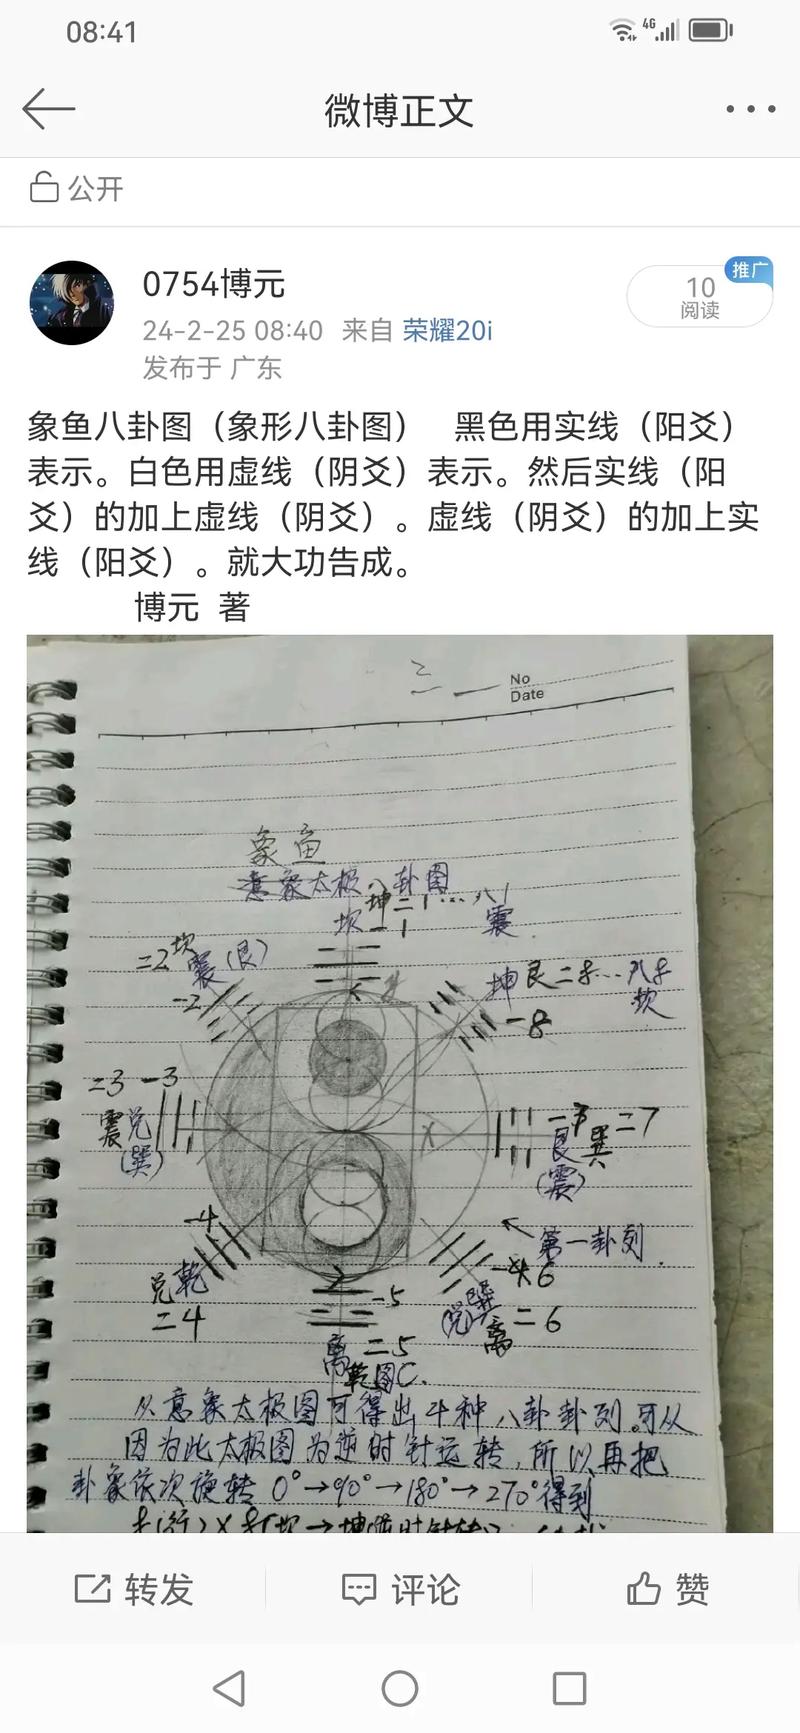 08:41
4G
微博正文
公开
0754博元
24-2-25 08:40 来自 荣耀20i
发布于 广东
推广
10
阅读
象鱼八卦图（象形八卦图） 黑色用实线（阳爻）
表示。白色用虚线（阴爻）表示。然后实线（阳
爻）的加上虚线（阴爻）。虚线（阴爻）的加上实
线（阳爻）。就大功告成。
博元 著
No
Date
象鱼
意象太极八卦图
坤二1…八1
坎一1
震
二2坎
震(艮)
一2
坤艮二8…八8
坎
一8
二3 一3
震兑
(巽)
一7
二7
艮巽
(震)
一4
兑乾
二4
第一卦列
6
巽
(兑)
离二6
一5
离二5
乾图C.
从意象太极图可得出4种八卦卦列.可从
因为此太极图为逆时针运转,所以再把
卦象依次旋转0°→90°→180°→270°得到
转发
评论
赞